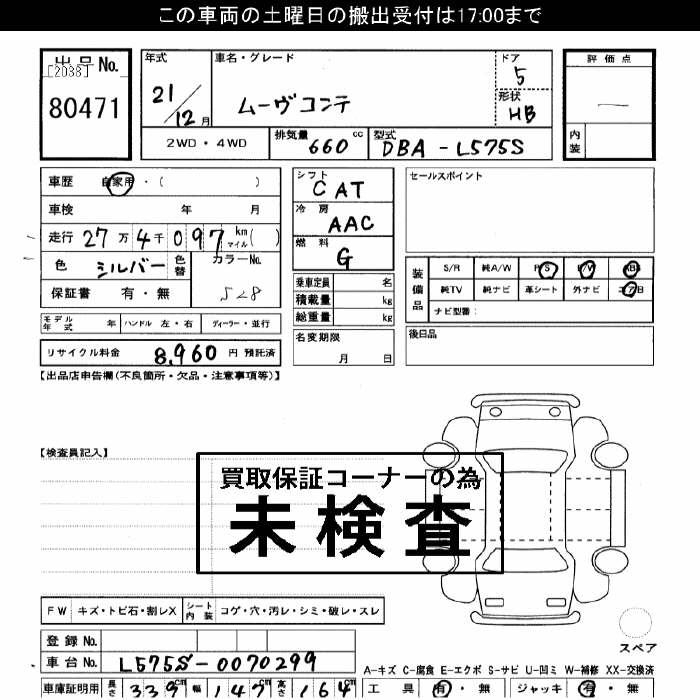 この車両の土曜日の搬出受付は17:00まで
出品No.
[2038]
80471
年式
21/12月
車名・グレード
ムーヴコンテ
ドア
5
形状
HB
評価点
—
内装
2WD・4WD
排気量 660 cc
型式 DBA-L575S
車歴 自家用・( )
車検 年 月
走行 27万4千097 km マイル( )
色 シルバー 色替 カラーNo. S28
保証書 有・無
モデル年式 年 ハンドル 左・右 ディーラー・並行
リサイクル料金 8,960 円 預託済
シフト CAT
冷房 AAC
燃料 G
乗車定員 名
積載量 kg
総重量 kg
名変期限
月 日
セールスポイント
装備品
S/R 純A/W P/S P/W ABS
純TV 純ナビ 革シート 外ナビ エアB
ナビ型番:
後日品
【出品店申告欄(不良箇所・欠品・注意事項等)】
【検査員記入】
買取保証コーナーの為
未検査
FW キズ・トビ石・割レX シート内装 コゲ・穴・汚レ・シミ・破レ・スレ
スペア
登録No.
車台No. L575S-0070299
A-キズ C-腐食 E-エクボ S-サビ U-凹ミ W-補修 XX-交換済
車庫証明用 長さ 339cm 幅 147cm 高さ 164cm
工具 有・無 ジャッキ 有・無